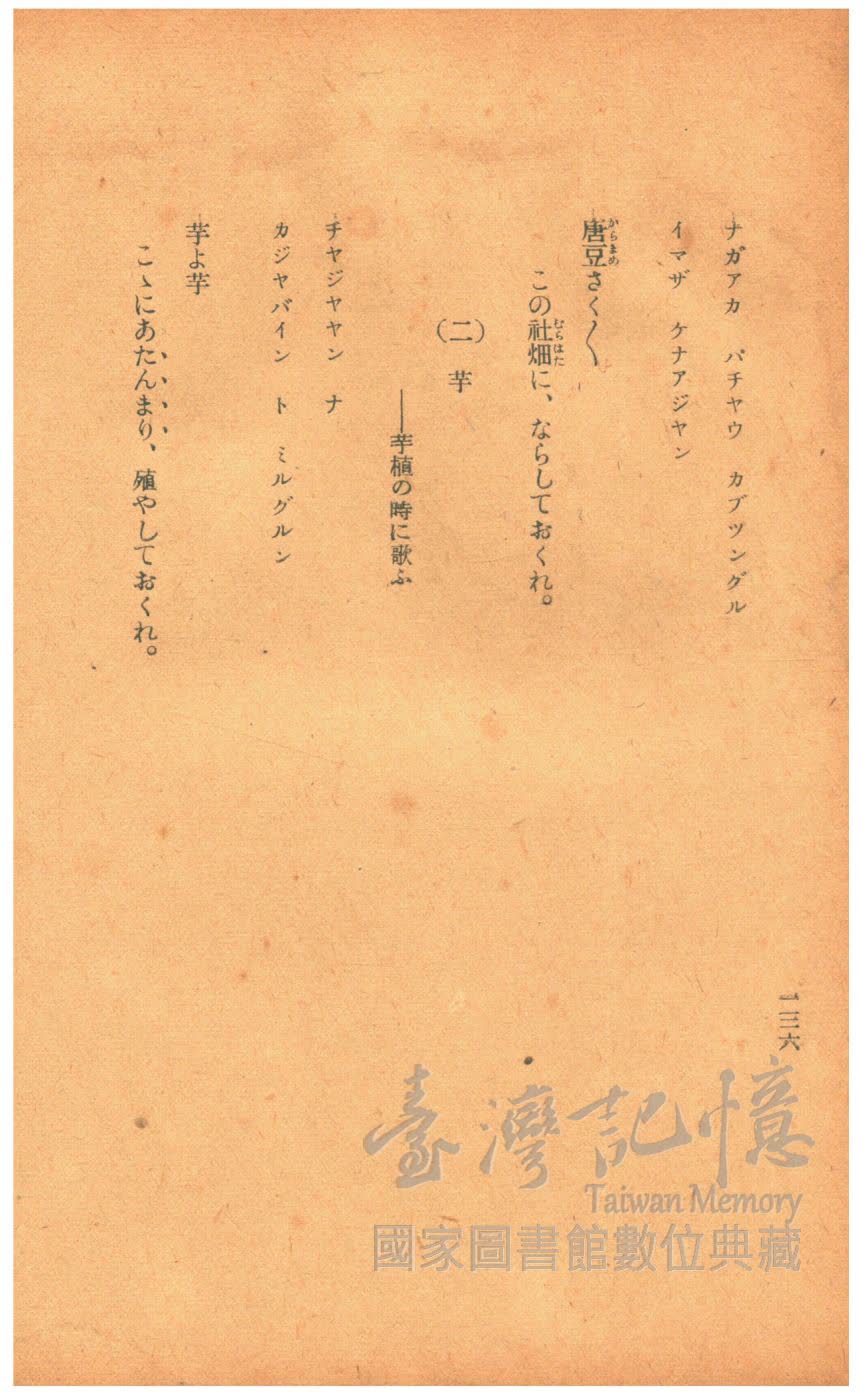 ナガアカ パチヤウ カブツングル
イマザ ケナアジヤン
唐豆さく〱
からまめ
この社畑に、ならしておくれ。
むらはた
(二) 芋
――芋植の時に歌ふ
チヤジヤヤン ナ
カジヤバイン ト ミルグルン
芋よ芋
こゝにあたんまり、殖やしておくれ。
一三六
臺灣記憶
Taiwan Memory
國家圖書館數位典藏